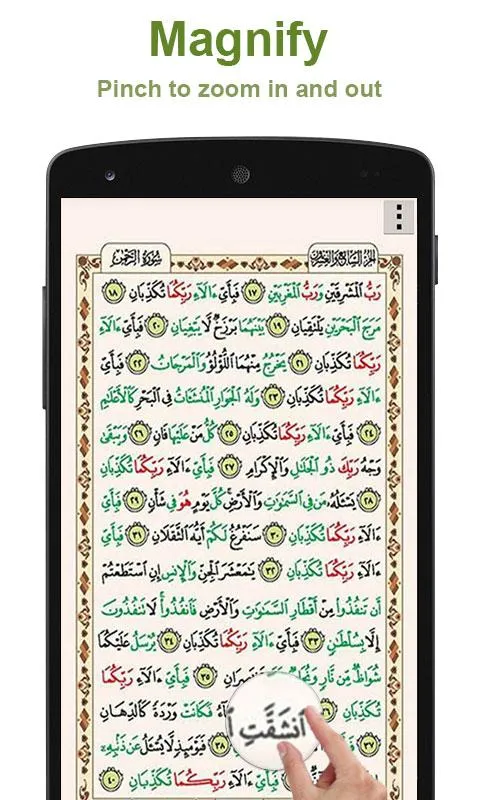 Magnify
Pinch to zoom in and out
سُورَةُ الرَّحْمٰن الجُزءُ السَّابِعُ وَالعِشْرُون
رَبُّ الْمَشْرِقَيْنِ وَرَبُّ الْمَغْرِبَيْنِ ١٧ فَبِأَيِّ ءَالَآءِ رَبِّكُمَا تُكَذِّبَانِ ١٨
مَرَجَ الْبَحْرَيْنِ يَلْتَقِيَانِ ١٩ بَيْنَهُمَا بَرْزَخٌ لَّا يَبْغِيَانِ ٢٠ فَبِأَيِّ ءَالَآءِ
رَبِّكُمَا تُكَذِّبَانِ ٢١ يَخْرُجُ مِنْهُمَا اللُّؤْلُؤُ وَالْمَرْجَانُ ٢٢ فَبِأَيِّ
ءَالَآءِ رَبِّكُمَا تُكَذِّبَانِ ٢٣ وَلَهُ الْجَوَارِ الْمُنشَئَاتُ فِي الْبَحْرِ كَالْأَعْلَٰمِ
٢٤ فَبِأَيِّ ءَالَآءِ رَبِّكُمَا تُكَذِّبَانِ ٢٥ كُلُّ مَنْ عَلَيْهَا فَانٍ ٢٦ وَيَبْقَىٰ
وَجْهُ رَبِّكَ ذُو الْجَلَٰلِ وَالْإِكْرَامِ ٢٧ فَبِأَيِّ ءَالَآءِ رَبِّكُمَا تُكَذِّبَانِ
٢٨ يَسْـَٔلُهُ مَن فِي السَّمَٰوَٰتِ وَالْأَرْضِ كُلَّ يَوْمٍ هُوَ فِي شَأْنٍ ٢٩ فَبِأَيِّ
ءَالَآءِ رَبِّكُمَا تُكَذِّبَانِ ٣٠ سَنَفْرُغُ لَكُمْ أَيُّهَ الثَّقَلَانِ ٣١ فَبِأَيِّ
ءَالَآءِ رَبِّكُمَا تُكَذِّبَانِ ٣٢ يَٰمَعْشَرَ الْجِنِّ وَالْإِنسِ إِنِ اسْتَطَعْتُمْ
أَن تَنفُذُوا مِنْ أَقْطَارِ السَّمَٰوَٰتِ وَالْأَرْضِ فَانفُذُوا لَا تَنفُذُونَ
إِلَّا بِسُلْطَٰنٍ ٣٣ فَبِأَيِّ ءَالَآءِ رَبِّكُمَا تُكَذِّبَانِ ٣٤ يُرْسَلُ عَلَيْكُمَا
شُوَاظٌ مِّن نَّارٍ ٣٥ فَبِأَيِّ ءَالَآءِ رَبِّكُمَا
تُكَذِّبَانِ ٣٦ انشَقَّتِ فَكَانَتْ وَرْدَةً كَالدِّهَانِ
٣٧ ٣٨ فَيَوْمَئِذٍ لَّا يُسْـَٔلُ عَن ذَنبِهِ
فَبِأَيِّ ءَالَآءِ رَبِّكُمَا تُكَذِّبَانِ ٤٠